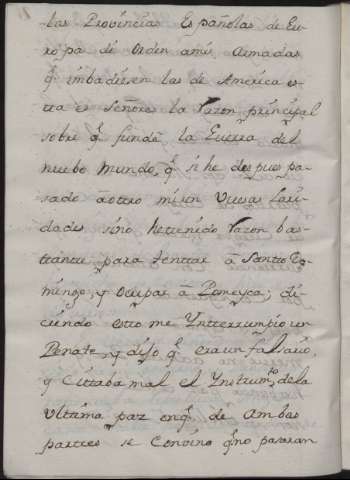 las Provincias Españolas de Eu
ropa dé Orden amí armadas
q̃ imbadiesen las de America es
ta es Señores la Razon principal
sobre q̃ fundé la Guerra del
nuebo Mundo, q̃ si he despues pa
sado àotro mi en Vuesas
dades sino hetenido Razon bas
tante para tenttar â Santto Do
mingo, y Ocupar â Xameyca; di
ciendo esto me Ynterrumpio un
Penate, y dijo q̃ eraun falsario,
y Cittaba mal el Ynstrumto. dela
Ultima paz enq̃ de ambas
parttes se Convino q̃no pasaran